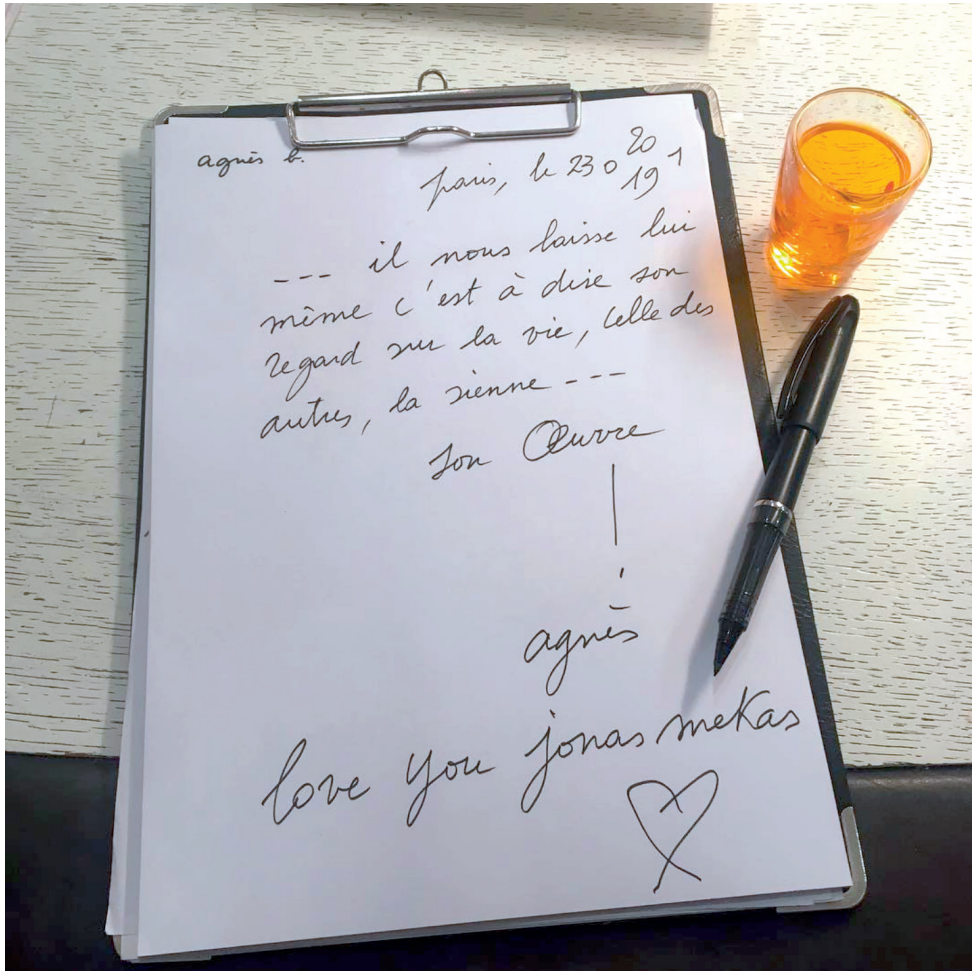 agnès b.
paris, le 23 0 20 19 1
--- il nous laisse lui
même c'est à dire son
regard sur la vie, celle des
autres, la sienne ---
son Œuvre
agnès
love you jonas mekas